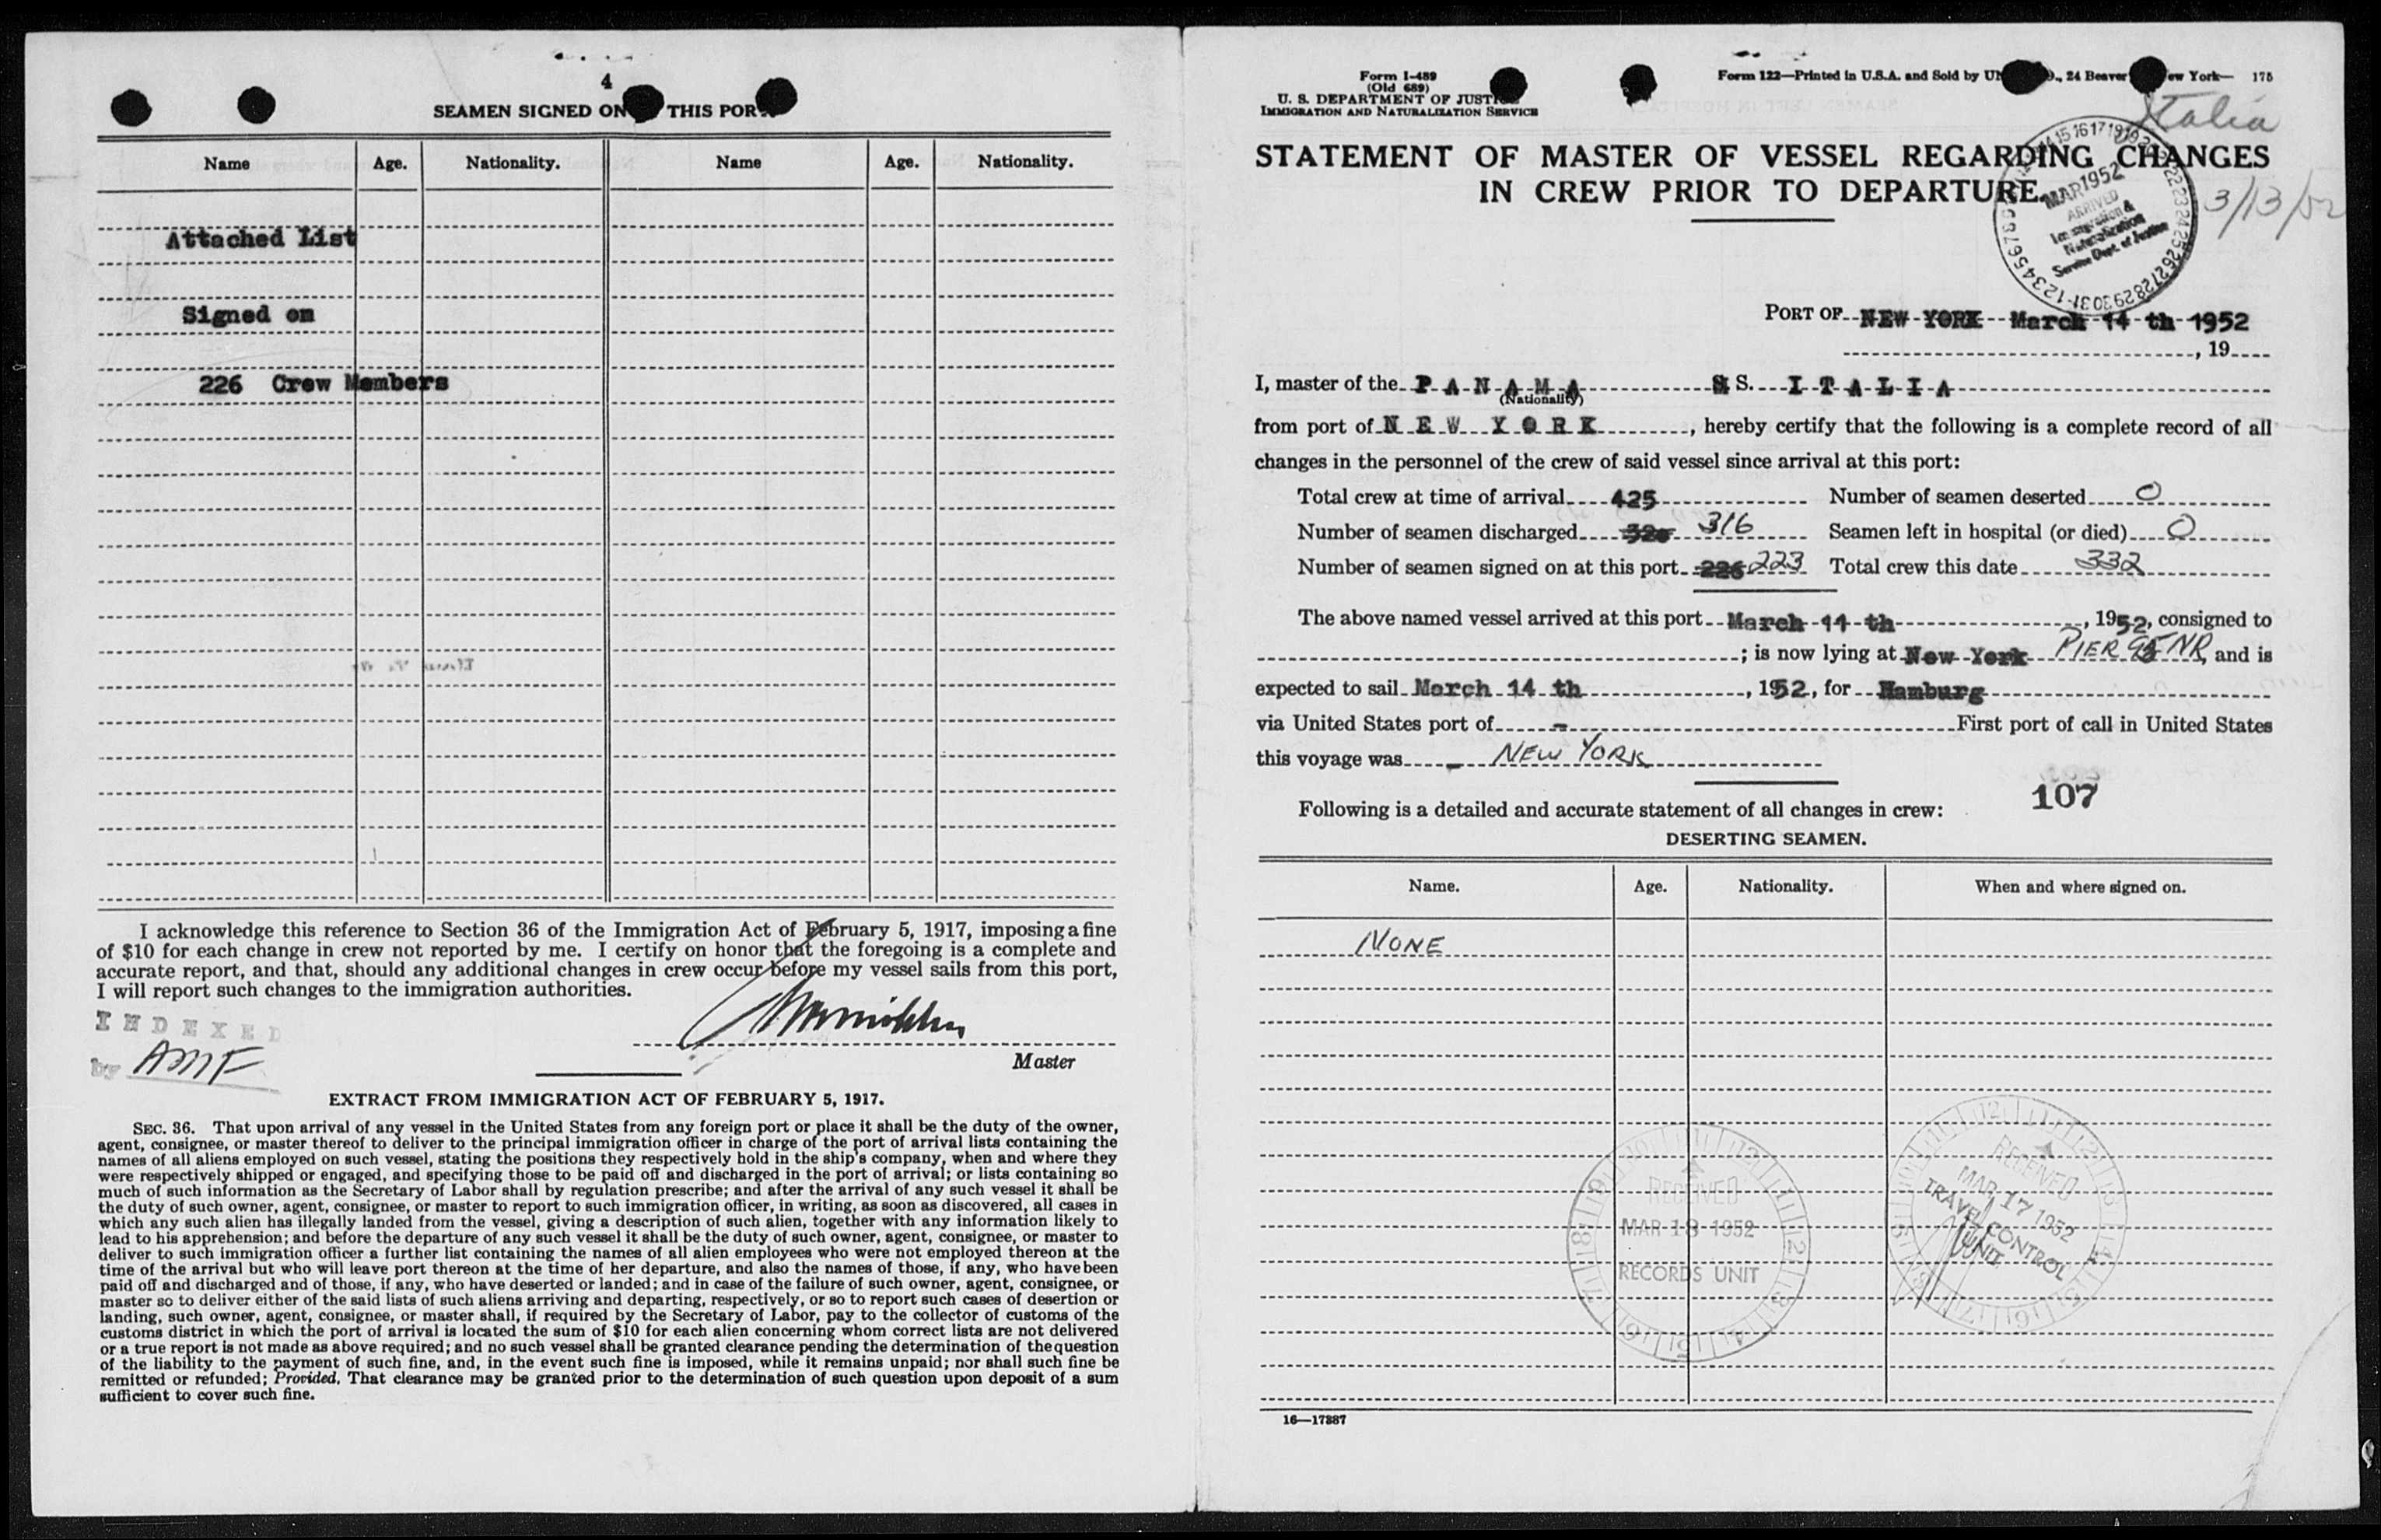 4
SEAMEN SIGNED ON THIS POR
Name Age. Nationality. Name Age. Nationality.
Attached List
Signed on
226 Crew Members
I acknowledge this reference to Section 36 of the Immigration Act of February 5, 1917, imposing a fine
of $10 for each change in crew not reported by me. I certify on honor that the foregoing is a complete and
accurate report, and that, should any additional changes in crew occur before my vessel sails from this port,
I will report such changes to the immigration authorities.
INDEXED
by AMF
Master
EXTRACT FROM IMMIGRATION ACT OF FEBRUARY 5, 1917.
SEC. 36. That upon arrival of any vessel in the United States from any foreign port or place it shall be the duty of the owner,
agent, consignee, or master thereof to deliver to the principal immigration officer in charge of the port of arrival lists containing the
names of all aliens employed on such vessel, stating the positions they respectively hold in the ship's company, when and where they
were respectively shipped or engaged, and specifying those to be paid off and discharged in the port of arrival; or lists containing so
much of such information as the Secretary of Labor shall by regulation prescribe; and after the arrival of any such vessel it shall be
the duty of such owner, agent, consignee, or master to report to such immigration officer, in writing, as soon as discovered, all cases in
which any such alien has illegally landed from the vessel, giving a description of such alien, together with any information likely to
lead to his apprehension; and before the departure of any such vessel it shall be the duty of such owner, agent, consignee, or master to
deliver to such immigration officer a further list containing the names of all alien employees who were not employed thereon at the
time of the arrival but who will leave port thereon at the time of her departure, and also the names of those, if any, who have been
paid off and discharged and of those, if any, who have deserted or landed; and in case of the failure of such owner, agent, consignee, or
master so to deliver either of the said lists of such aliens arriving and departing, respectively, or so to report such cases of desertion or
landing, such owner, agent, consignee, or master shall, if required by the Secretary of Labor, pay to the collector of customs of the
customs district in which the port of arrival is located the sum of $10 for each alien concerning whom correct lists are not delivered
or a true report is not made as above required; and no such vessel shall be granted clearance pending the determination of the question
of the liability to the payment of such fine, and, in the event such fine is imposed, while it remains unpaid; nor shall such fine be
remitted or refunded; Provided, That clearance may be granted prior to the determination of such question upon deposit of a sum
sufficient to cover such fine.
Form I-489
(Old 689)
U. S. DEPARTMENT OF JUSTICE
IMMIGRATION AND NATURALIZATION SERVICE
Form 122—Printed in U.S.A. and Sold by 24 Beaver New York— 175
Italia
STATEMENT OF MASTER OF VESSEL REGARDING CHANGES
IN CREW PRIOR TO DEPARTURE.
3/13/52
MAR 1952
ARRIVED
Immigration &
Naturalization
Service Dept. of Justice
PORT OF NEW YORK March 14 th 1952
, 19
I, master of the P A N A M A S S. I T A L I A
(Nationality)
from port of N E W Y O R K, hereby certify that the following is a complete record of all
changes in the personnel of the crew of said vessel since arrival at this port:
Total crew at time of arrival 425 Number of seamen deserted 0
Number of seamen discharged 316 Seamen left in hospital (or died) 0
Number of seamen signed on at this port 226 223 Total crew this date 332
The above named vessel arrived at this port March 11 th, 1952, consigned to
; is now lying at New York PIER NR, and is
expected to sail March 14 th, 1952, for Hamburg
via United States port of - First port of call in United States
this voyage was - NEW YORK
107
Following is a detailed and accurate statement of all changes in crew:
DESERTING SEAMEN.
Name. Age. Nationality. When and where signed on.
NONE
RECEIVED
MAR 18 1952
RECORDS UNIT
RECEIVED
MAR 17 1952
TRAVEL CONTROL
UNIT
16—17387